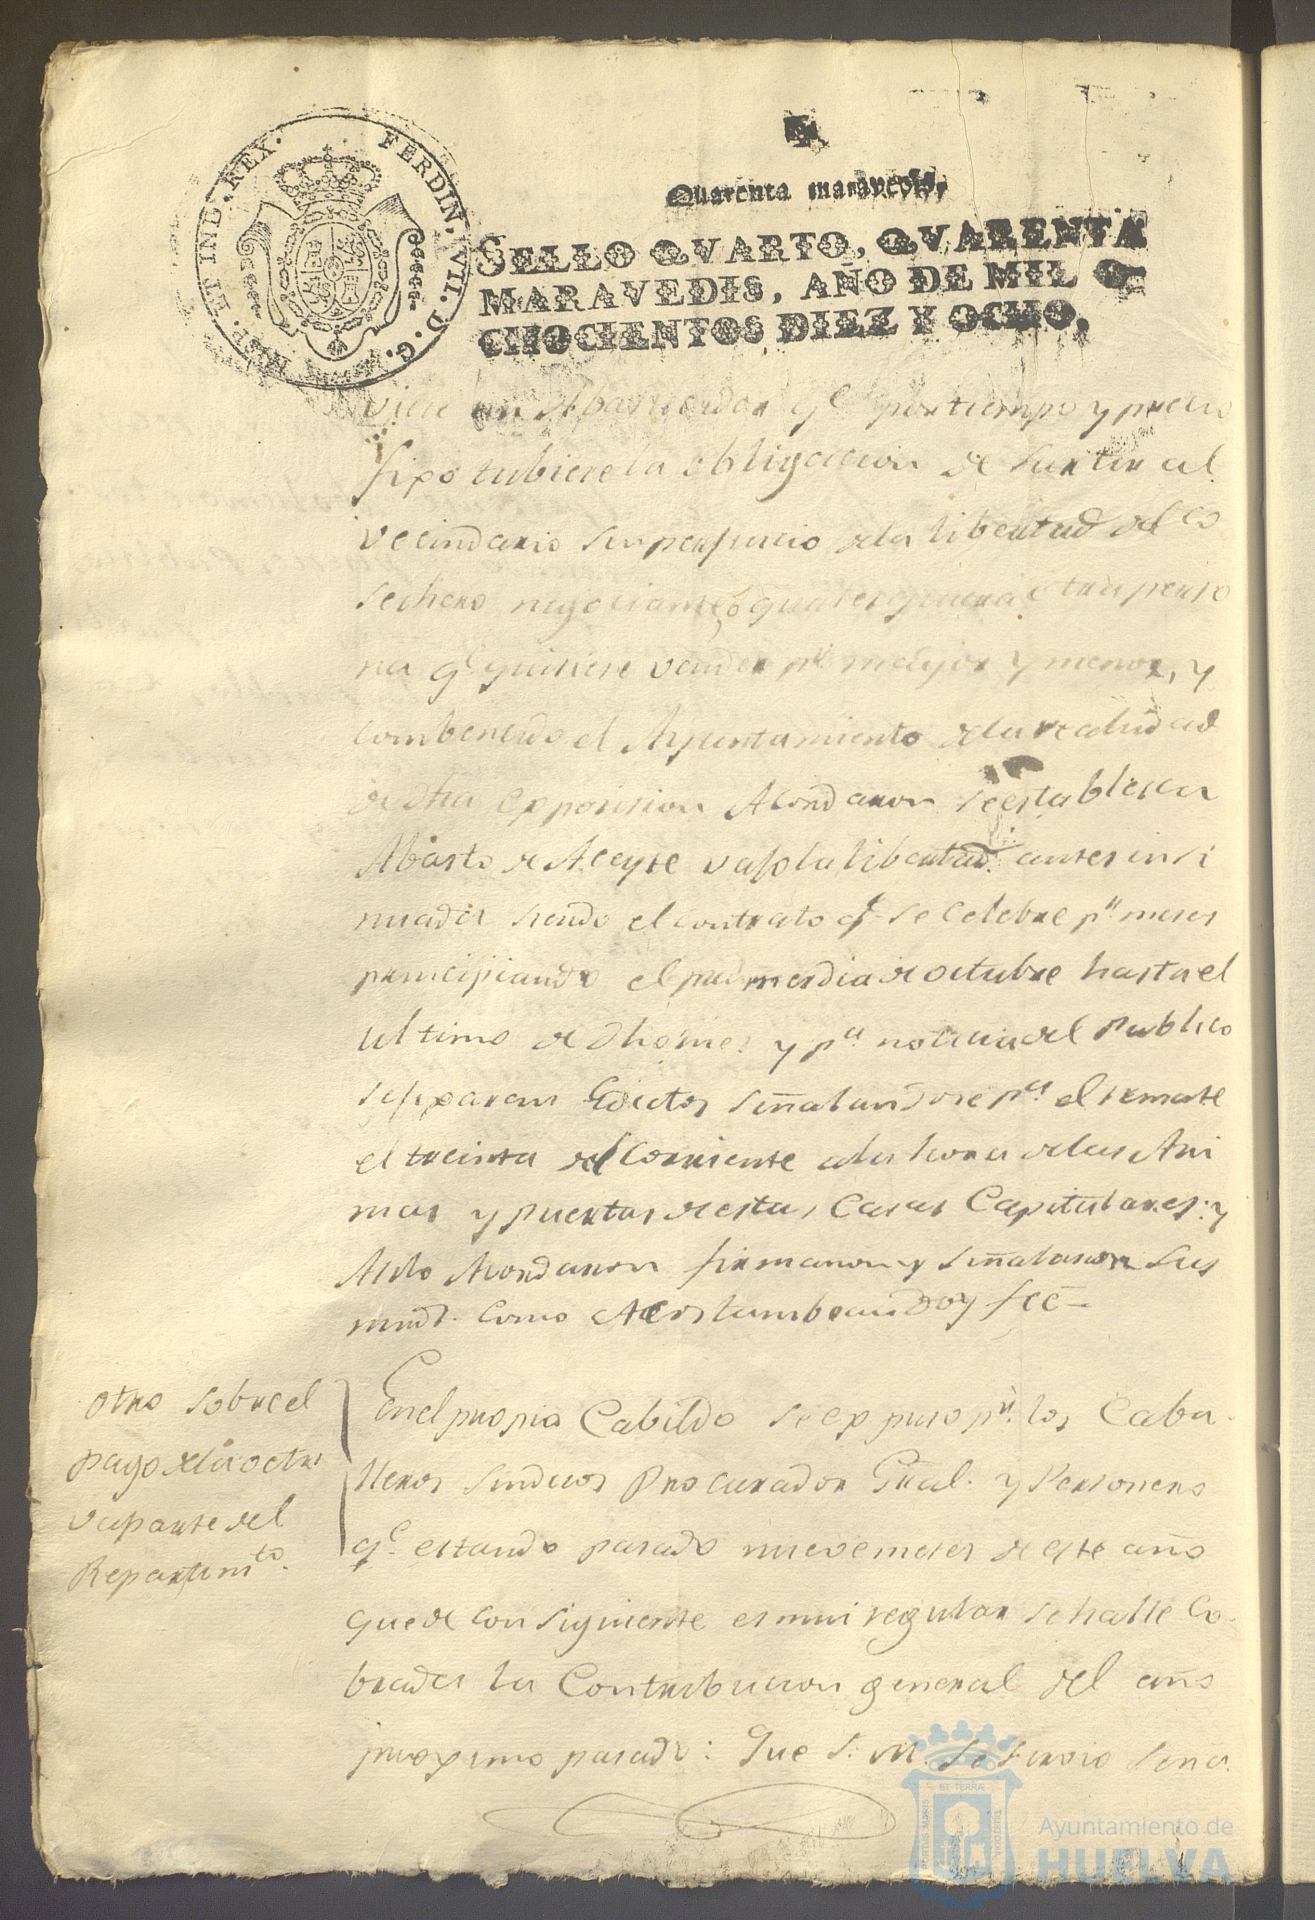 HISP. ET IND. REX. FERDIN. VII. D. G.
Quarenta maravedis.
SELLO QVARTO, QVARENTA
MARAVEDIS, AÑO DE MIL O
CHOCIENTOS DIEZ Y OCHO.
un Abastecedor qe. por tiempo y precio
fixo tubiere la obligacion de surtir al
vecindario sin perjuicio dela libertad del co
sechero negociante, o qualesquiera otra perso
na qe. quisiere vender pr. mayor y menor, y
combencido el Ayuntamiento dela realidad
de dha exposision Acordaron se establesca
Abasto de Aceyte vajo la libertad antes insi
nuada siendo el contrato qe. se celebre pr. meses
principiando el primer dia de octubre hasta el
ultimo de y pa. noticia del Publico
se fixaran Edictos señalandose pa. el remate
el treinta del corriente ala hora delas Ani
mas y puertas de estas Casas Capitulares: y
Asilo Acordaron firmaron y señalaron sus
mrds. como Acostumbran doy fee=
Otro sobre el
pago dela octa
va parte del
Repartimto.
En el propio Cabildo se expuso pr. los Caba
lleros Sindicos Procurador Gral. y Personero
qe. estando pasado nueve meses de este año
que de consiguiente es mui regular se halle Co
brada la Contribucion general del año
proximo pasado: Que S. M. se sirvio sena
ET TERRÆ
Ayuntamiento de
HUELVA